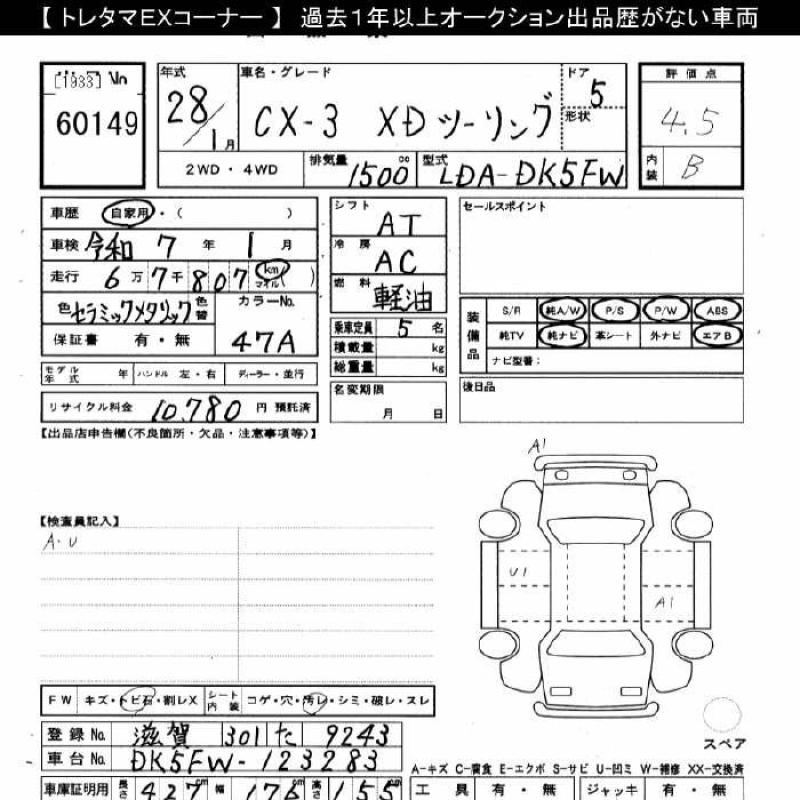 【 トレタマEXコーナー 】 過去1年以上オークション出品歴がない車両
[1933] No
60149
年式 28/1月
車名・グレード CX-3 XDツーリング
ドア 5
形状
評価点 4.5
内装 B
2WD・4WD
排気量 1500 cc
型式 LDA-DK5FW
車歴 自家用・( )
車検 令和 7 年 1 月
走行 6万7千807 km マイル( )
色 セラミックメタリック 色替
カラーNo. 47A
保証書 有・無
シフト AT
冷房 AC
燃料 軽油
乗車定員 5 名
積載量 kg
総重量 kg
セールスポイント
装備品 S/R 純A/W P/S P/W ABS
純TV 純ナビ 革シート 外ナビ エアB
ナビ型番:
モデル年式 年 ハンドル 左・右 ディーラー・並行
リサイクル料金 10,780 円 預託済
名変期限 月 日
後日品
【出品店申告欄(不良箇所・欠品・注意事項等)】
A1
【検査員記入】
A・U
U1
A1
FW キズ・トビ石・割レX シート内装 コゲ・穴・汚レ・シミ・破レ・スレ
登録No. 滋賀 301 た 9243
スペア
車台No. DK5FW-123283
A-キズ C-腐食 E-エクボ S-サビ U-凹ミ W-補修 XX-交換済
車庫証明用 長さ 427 cm 幅 176 cm 高さ 155 cm
工具 有・無 ジャッキ 有・無